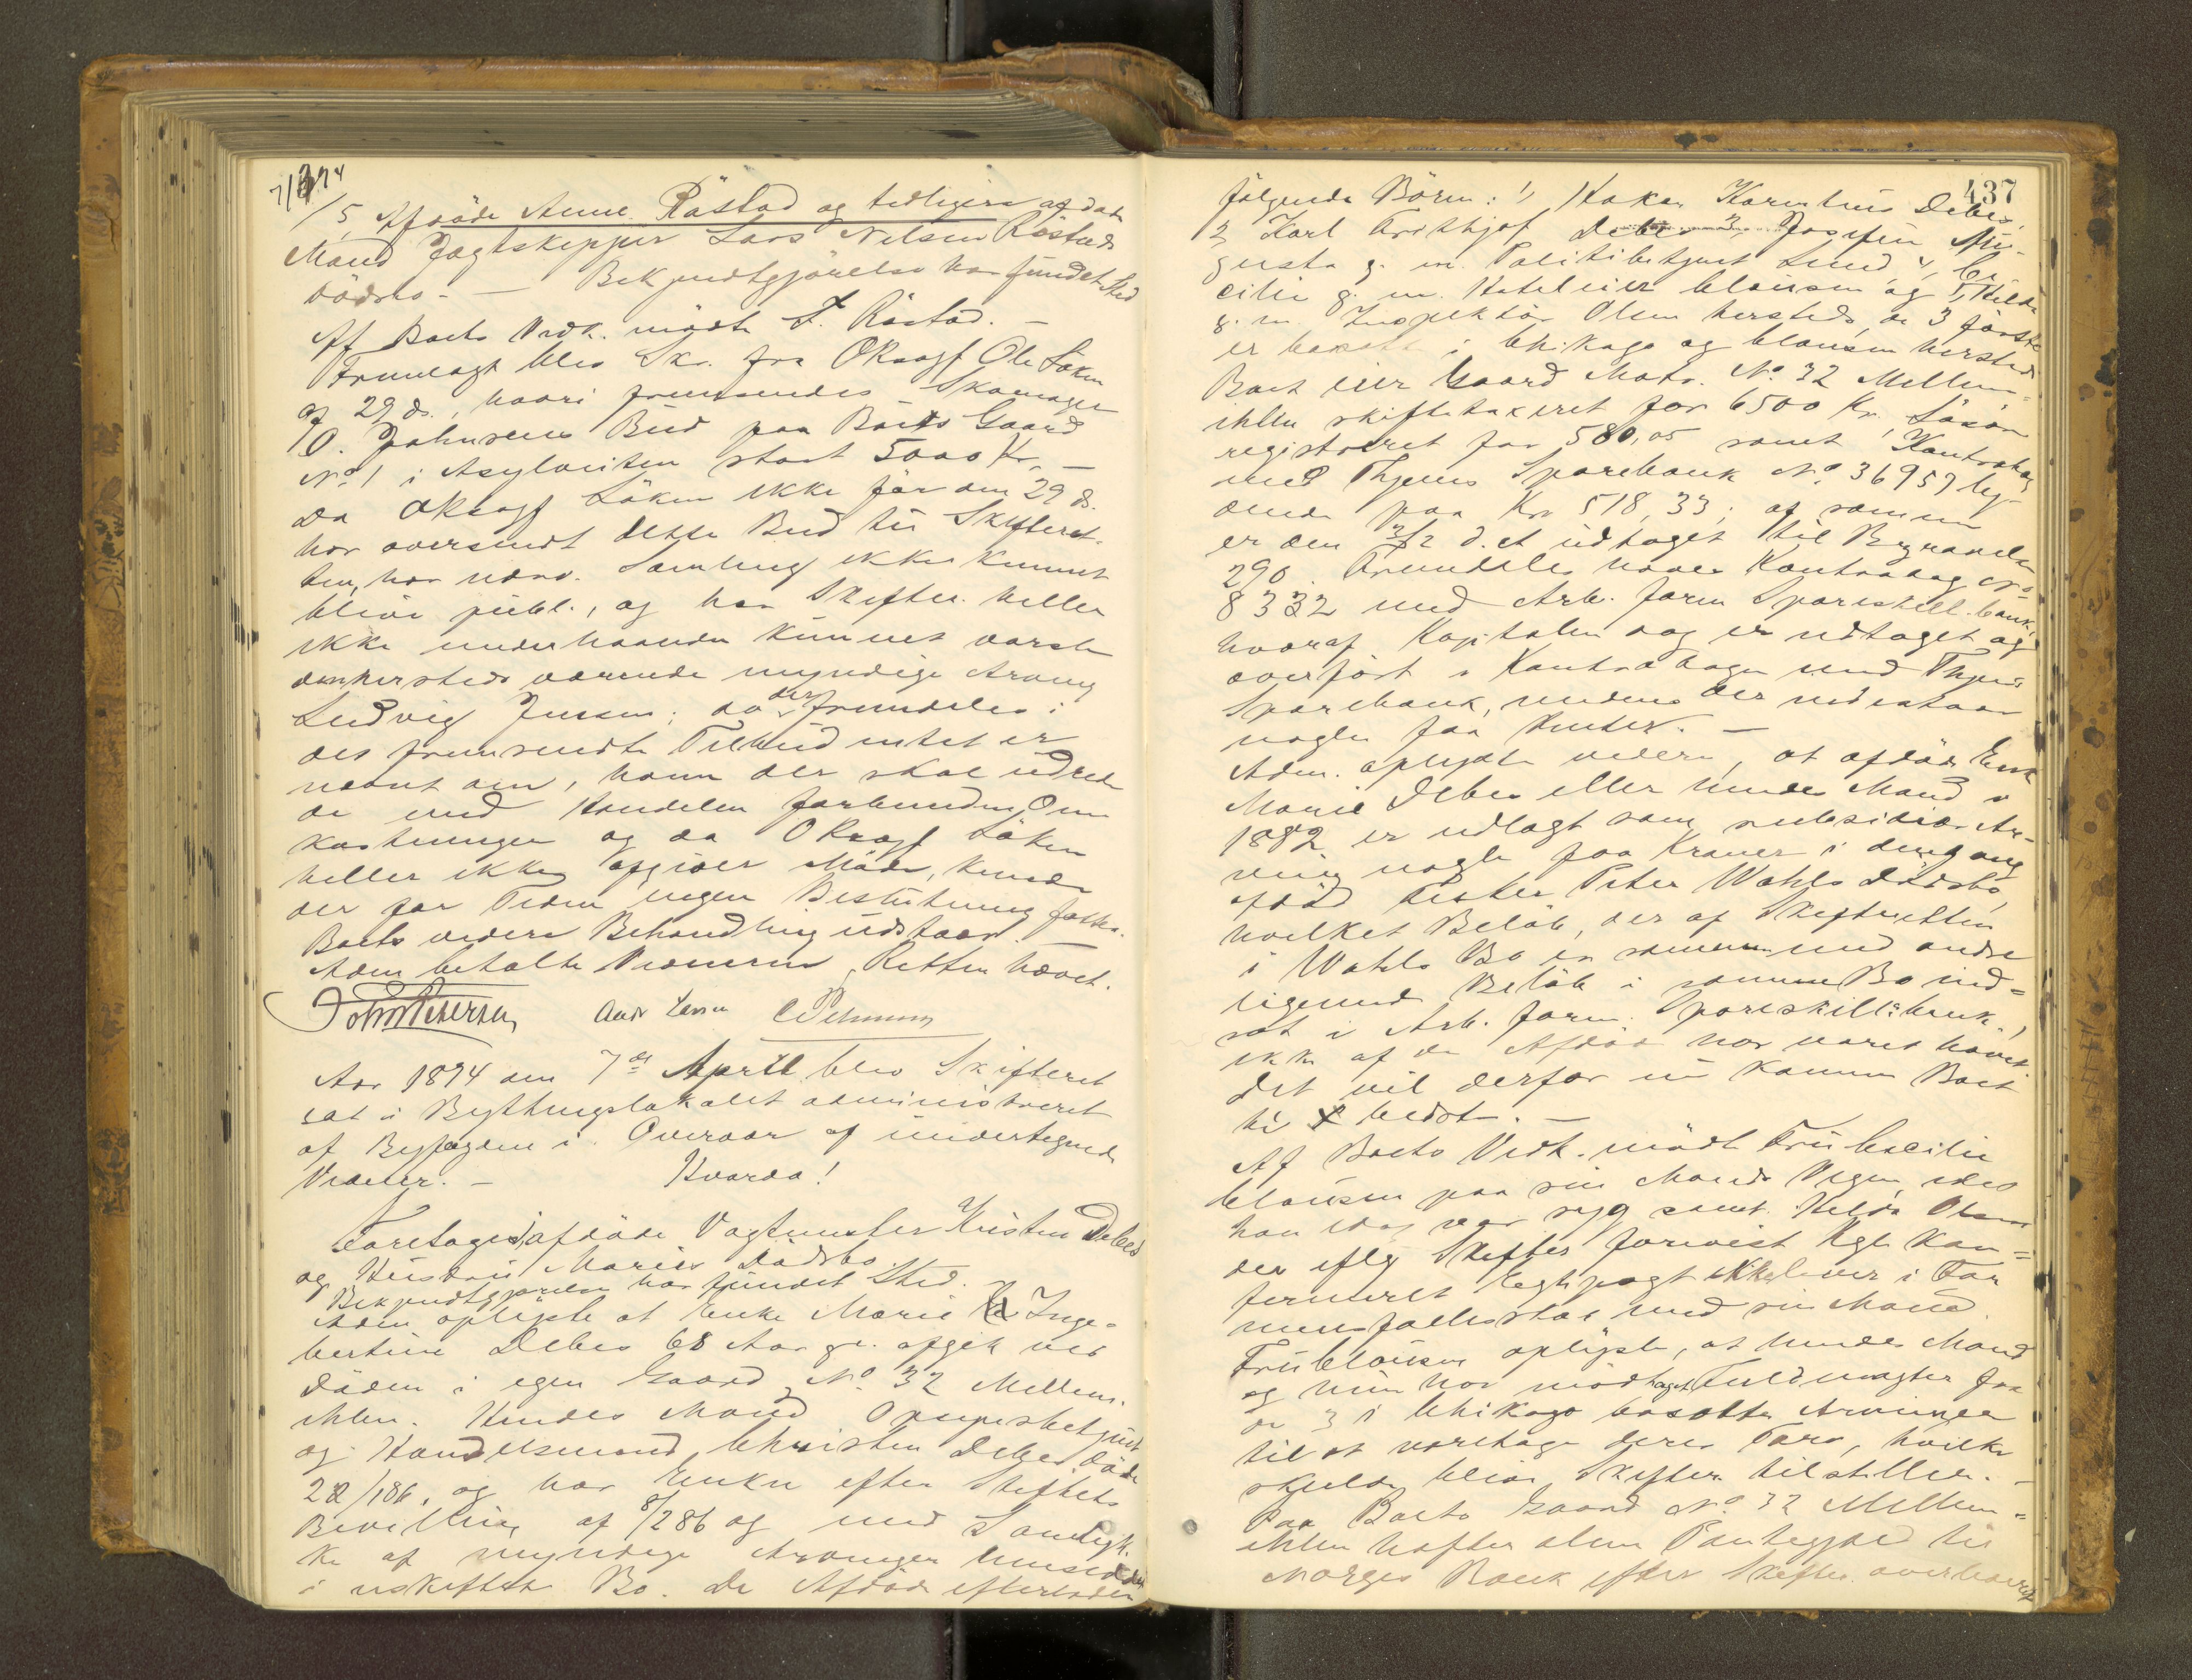 7/4 94
5, Afdöde Anne Röstad og tidligere afdöde
Mand Jagtskipper Lars Nilsen Röstads
dödsbo. — Bekjendtgjörelse har fundet Sted
Af Boets Vedk. mödte F. Röstad. —
Fremlagt blev Skr. fra ORsagf Ole Löken
af 29 ds., hvori fremsendes Skomager
O. Johnsens Bud paa Boets Gaard
No 1 i Asylveiten stort 5000 Kr. —
Da ORsagf Löken ikke för den 29 ds.
har oversendt dette Bud til Skifteret-
ten, har nærv. Samling ikke kunnet
blive publ., og har Skifter. heller
ikke underhaanden kunnet varsle
den hersteds værende myndige Arving
Ludvig Jensen; da der fremdeles i
det fremsendte Tilbud intet er
nævnt om, hvem der skal udrede
de med Handelen forbundne Om
kostninger og da ORsagf Löken
heller ikke afgiver Möde, kunde
der for Tiden ingen Beslutning fattes.
Boets videre Behandling udstaar. —
Adm. betalte Vidnerne. Retten hævet.
John Petersen
Aar 1894 den 7de April blev Skifteret
sat i Bythingslokalet administreret
af Byfogden i Overvær af undertegnede
Vidner. — Hvorda!
Foretoges 1, afdöde Vagtmester Kristen Debes
og Hustru Maries Dödsbo.
Bekjendtgjörelse har fundet Sted.
Adm oplyste at Enke Marie Inge-
bertine Debes 68 Aar gl. afgik ved
Döden i egen Gaard No 32 Mellem-
ihlen. Hendes Mand
og Handelsmand Christen Debes döde
og har Enken efter Skiftets
Bevilling af 8/2 86 og med Samtyk-
ke af myndige Arvinger hensiddet
i uskiftet Bo. De Afdöde efterlader
437
fölgende Börn: 1, Hakon Kornelius Debes,
2, Karl Frithjof Debes 3, Josefine Au-
gusta g. m. Politibetjent Lund, 4, Ce-
cilie g. m. Hoteleier Clausen og 5, Hilda
g. m Inspektör Olsen hersteds, de 3 förste
er bosatte i Chikago og Clausen hersteds
Boet eier Gaard Matr. No 32 Mellem-
ihlen skiftetaxeret for 6500 Kr, Lösöre
registreret for 580,05 samt Kontrabog
med Thjems Sparebank No 36957 ly-
dende paa Kr 518,33; af samme
er den 3/2 d. A udtaget til Begravelsen
290. Fremdeles haves Kontrabog No
8332 med Arb. foren Spareskill.bank,
hvoraf Kapitalen dog er udtaget og
overfört i Kontrabogen med Thjems
Sparebank, medens der udestaar
nogle faa Renter. —
Adm. oplyste videre, at afdöde Enke
Marie Debes eller hendes Mand i
1882 er udlagt som subsidiær Ar-
ving nogle faa Kroner i dengang
afdöd Fisker Peter Wahls Dödsbo,
hvilket Belöb, der af Skifteretten
i Wahls Bo er sammen med andre
lignende Belöb i samme Bo ind-
sat i Arb. foren. Spareskill.bank.,
ikke af de Afdöde har været hævet
det vil derfor nu komme Boet
til bedste. —
Af Boets Vedk. mödte Fru Cecilie
Clausen paa sin Mands Vegne, idet
han idag var syg samt Hilda Olsen
der iflg Skifter forevist Kgl Kon-
firmeret Ægtepagt ikke lever i For
muesfællesskab med sin Mand
Fru Clausen oplyste, at hendes Mand
og hun har modtaget Fuldmagter fra
de 3 i Chikago bosatte Arvinger
til at varetage deres Tarv, hvilke
skulde blive Skifter. tilstillet. —
Paa Boets Gaard No 32 Mellem-
ihlen hefter alene Pantegjæld til
Norges Bank efter Skifter. overleveret